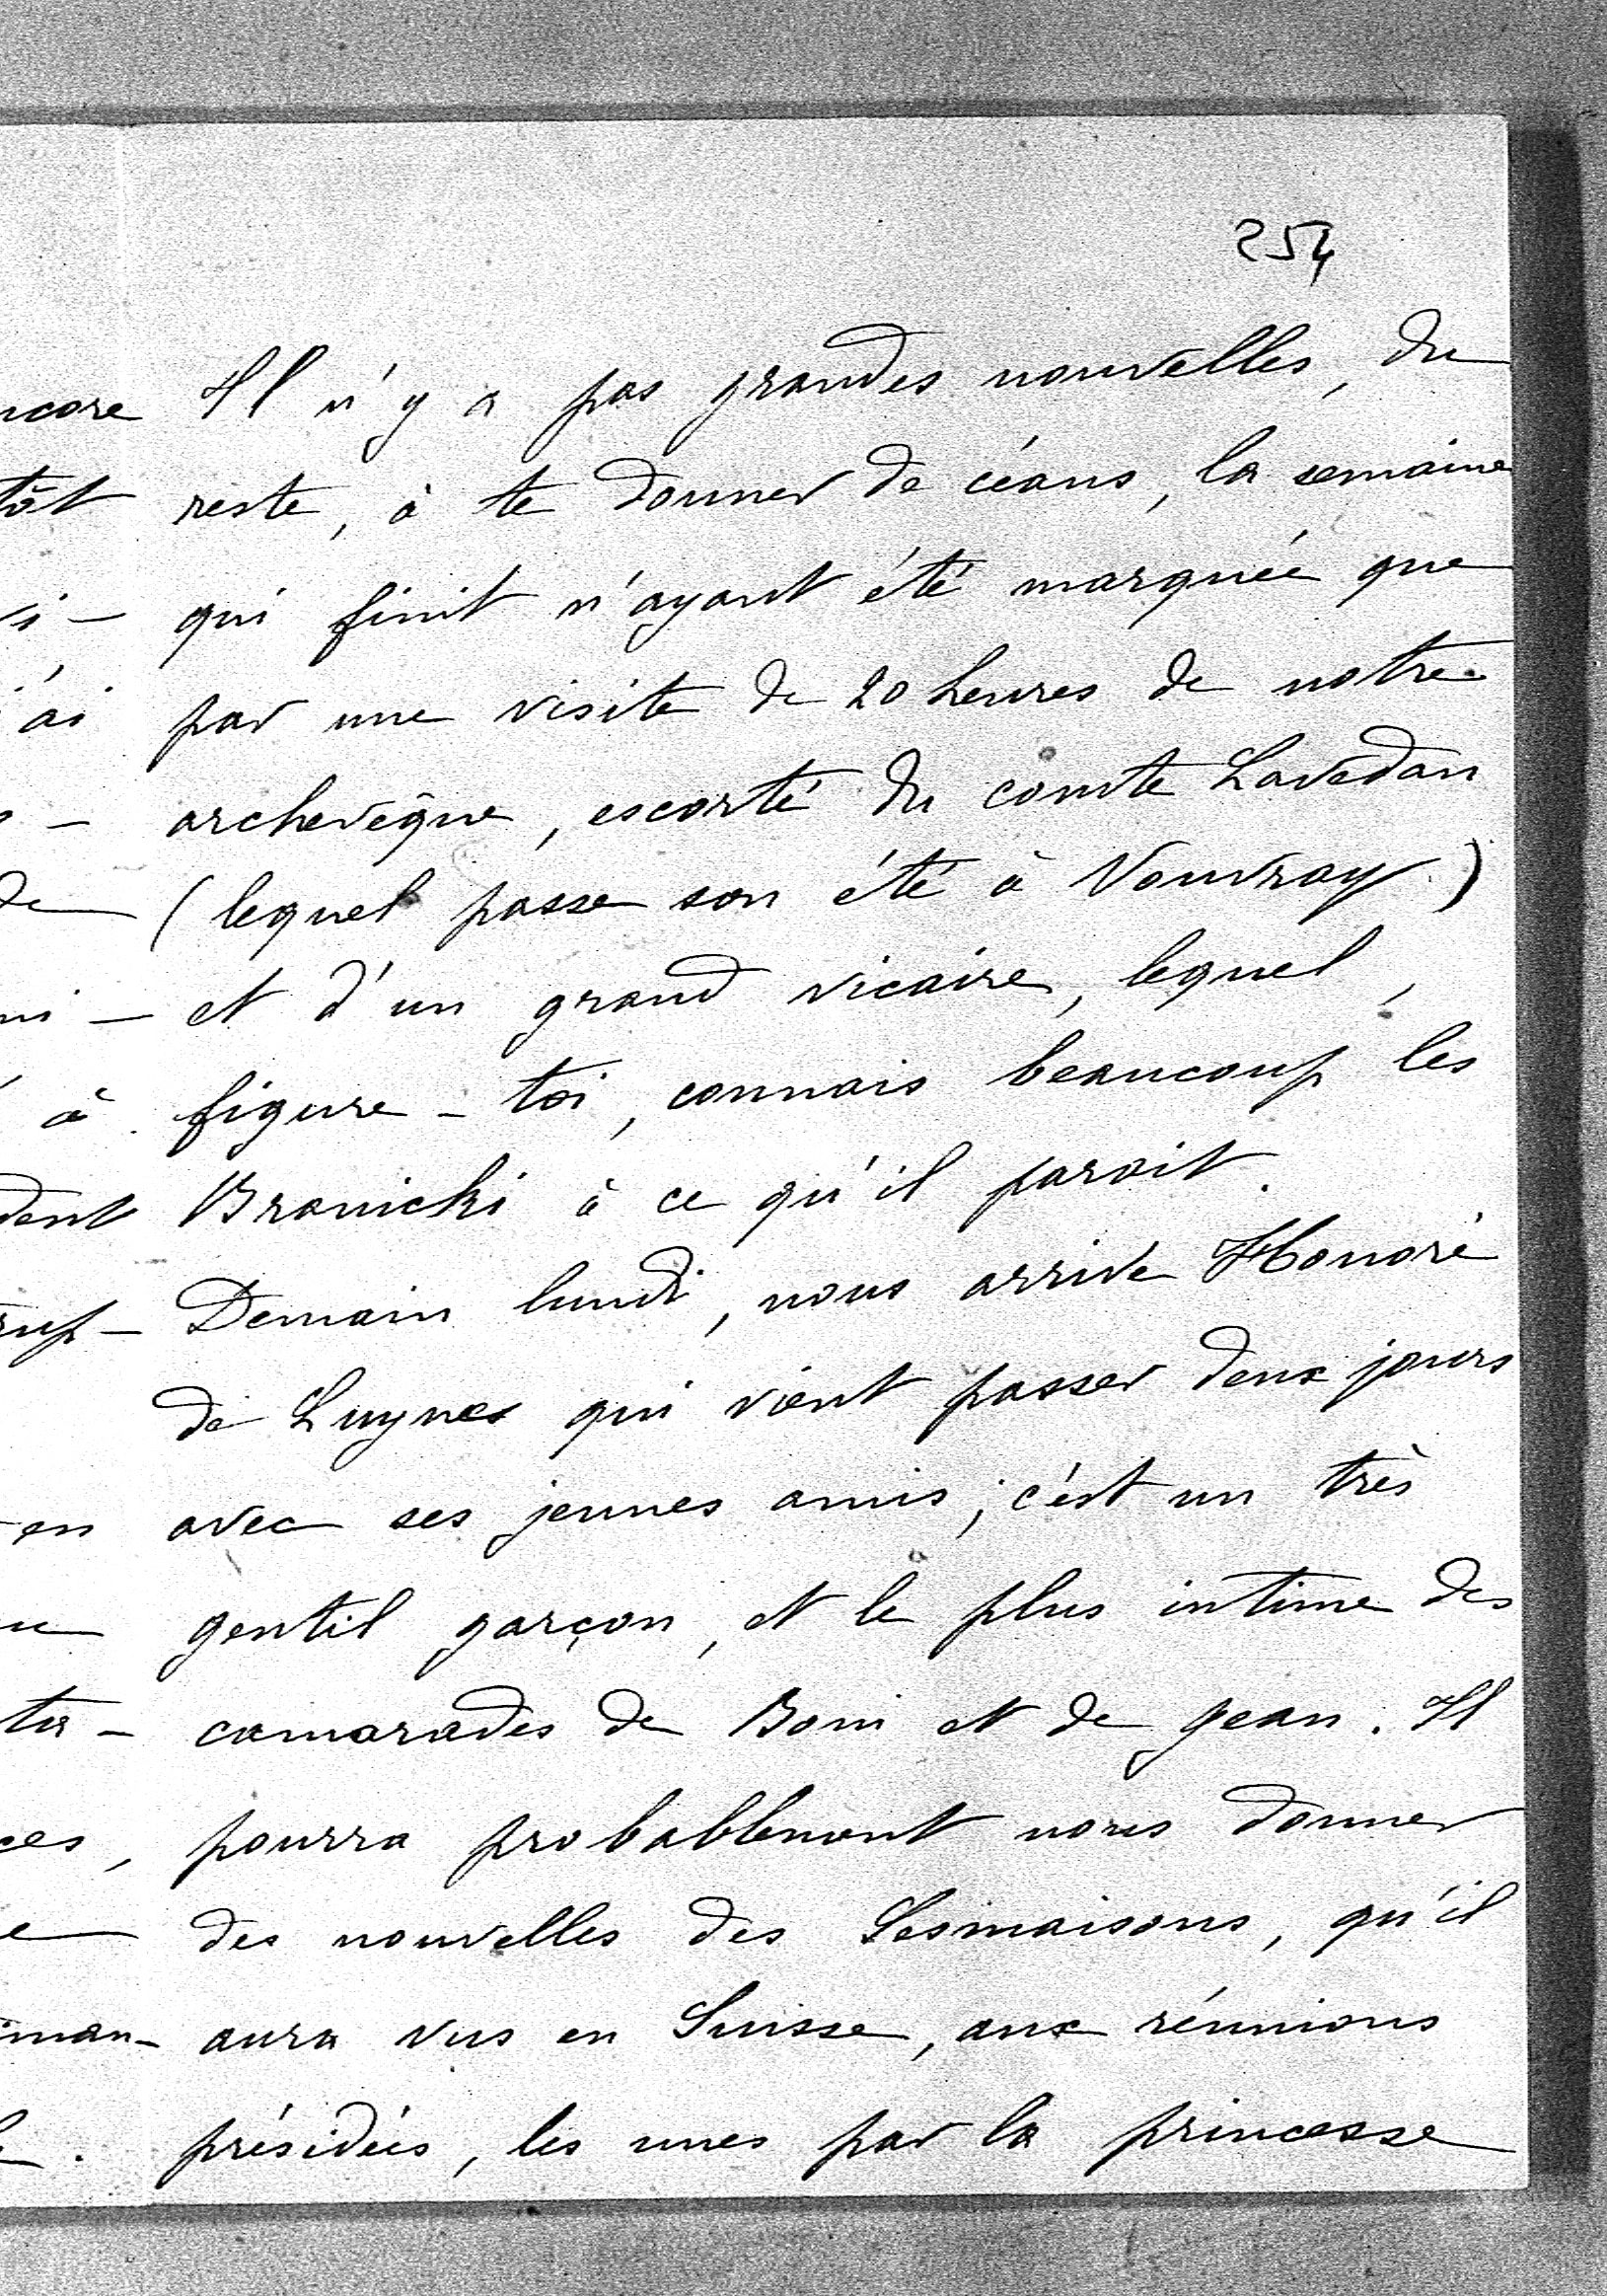 254
Il n'y a pas grandes nouvelles, du
reste, à te donner de céans, la semaine
qui finit n'ayant été marquée que
par une visite de 20 heures de notre
archevêque, escorté du comte Lavedan
(lequel passe son été à Vouvray)
et d'un grand vicaire, lequel,
figure-toi, connais beaucoup les
Branicki à ce qu'il parait.
Demain lundi, nous arrive Honoré
de Luynes qui vient passer deux jours
avec ses jeunes amis; c'est un très
gentil garçon, et le plus intime des
camarades de Boni et de Jean. Il
pourra probablement nous donner
des nouvelles des Lesmaisons, qu'il
aura vus en Suisse, aux réunions
présidées, les unes par la princesse